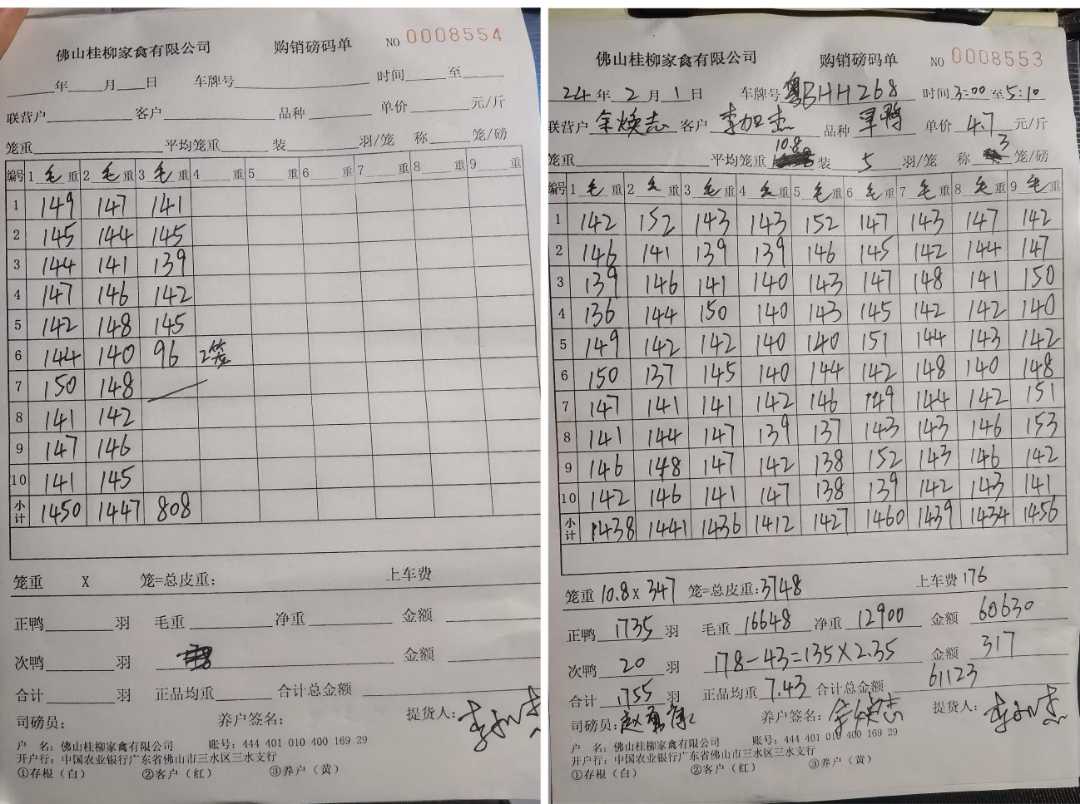 佛山桂柳家禽有限公司 购销磅码单 NO 0008554
年 月 日 车牌号 时间 至
联营户 客户 品种 单价 元/斤
笼重 平均笼重 装 羽/笼 称 笼/磅
编号 1 毛 重 2 毛 重 3 毛 重 4 重 5 重 6 重 7 重 8 重 9 重
1 149 147 141
2 145 144 145
3 144 141 139
4 147 146 142
5 142 148 145
6 144 140 96 2笼
7 150 148
8 141 142
9 147 146
10 141 145
小计 1450 1447 808
笼重 X 笼=总皮重: 上车费
正鸭 羽 毛重 净重 金额
次鸭 羽 金额
合计 羽 正品均重 合计总金额
司磅员: 养户签名: 提货人:
户 名: 佛山桂柳家禽有限公司 账号: 444 401 010 400 169 29
开户行: 中国农业银行广东省佛山市三水区三水支行
①存根(白) ②客户(红) ③养户(黄)
佛山桂柳家禽有限公司 购销磅码单 NO 0008553
24 年 2 月 1 日 车牌号 粤BHH268 时间 3:00 至 5:10
联营户 余焕志 客户 李加杰 品种 单价 4.7 元/斤
笼重 平均笼重 10.8 装 5 羽/笼 称 3 笼/磅
编号 1 毛 重 2 毛 重 3 毛 重 4 毛 重 5 毛 重 6 毛 重 7 毛 重 8 毛 重 9 毛 重
1 142 152 143 143 152 147 143 147 142
2 146 141 139 139 146 145 142 144 147
3 139 146 141 140 143 147 148 141 150
4 136 144 150 140 143 145 142 142 140
5 149 142 142 140 140 151 144 143 142
6 150 137 145 140 144 142 148 140 148
7 147 141 141 142 146 149 144 142 151
8 141 144 147 139 137 143 143 146 153
9 146 148 147 142 138 152 143 146 142
10 142 146 141 147 138 139 142 143 141
小计 1438 1441 1436 1412 1427 1460 1439 1434 1456
笼重 10.8 X 347 笼=总皮重: 3748 上车费 176
正鸭 1735 羽 毛重 16648 净重 12900 金额 60630
次鸭 20 羽 178-43=135×2.35 金额 317
合计 1755 羽 正品均重 7.43 合计总金额 61123
司磅员: 养户签名: 余焕志 提货人:
户 名: 佛山桂柳家禽有限公司 账号: 444 401 010 400 169 29
开户行: 中国农业银行广东省佛山市三水区三水支行
①存根(白) ②客户(红) ③养户(黄)